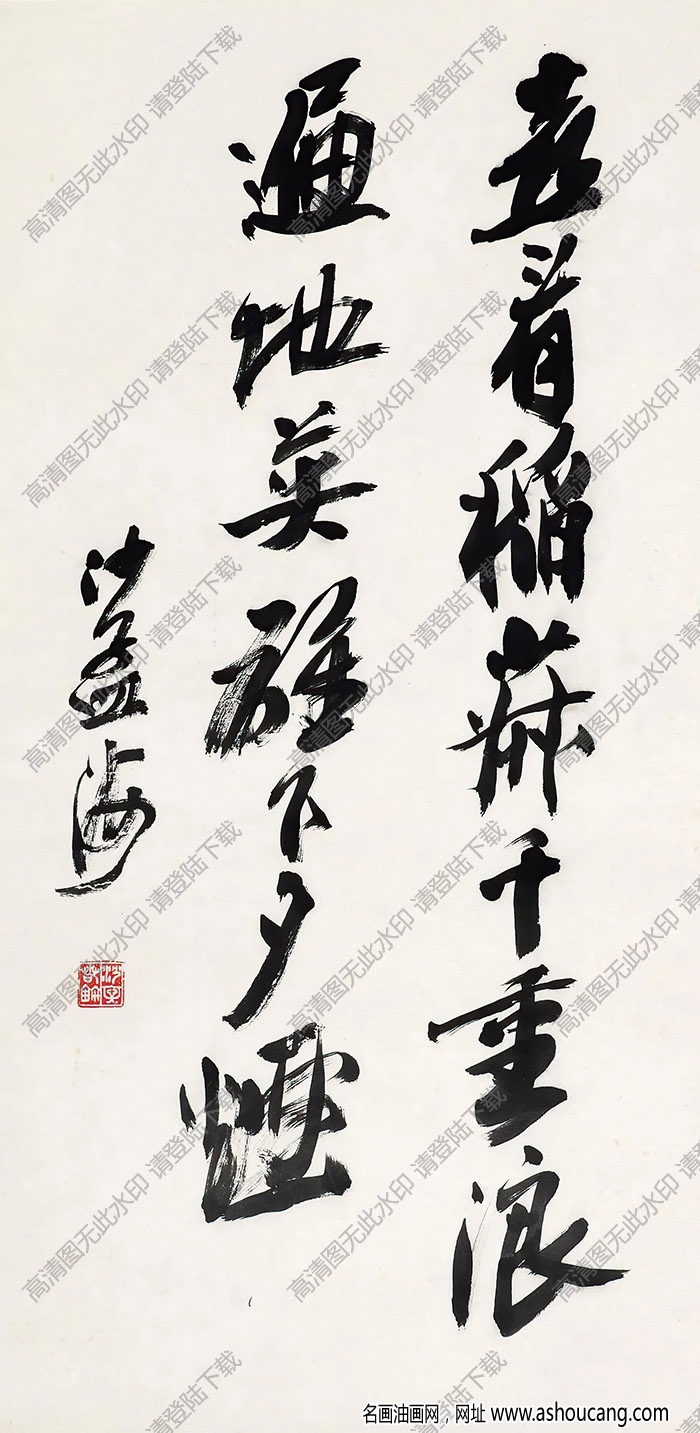 喜看稻菽千重浪
遍地英雄下夕煙
沙孟海
高清图无此水印 请登陆下载
名画油画网，网址 www.ashoucang.com